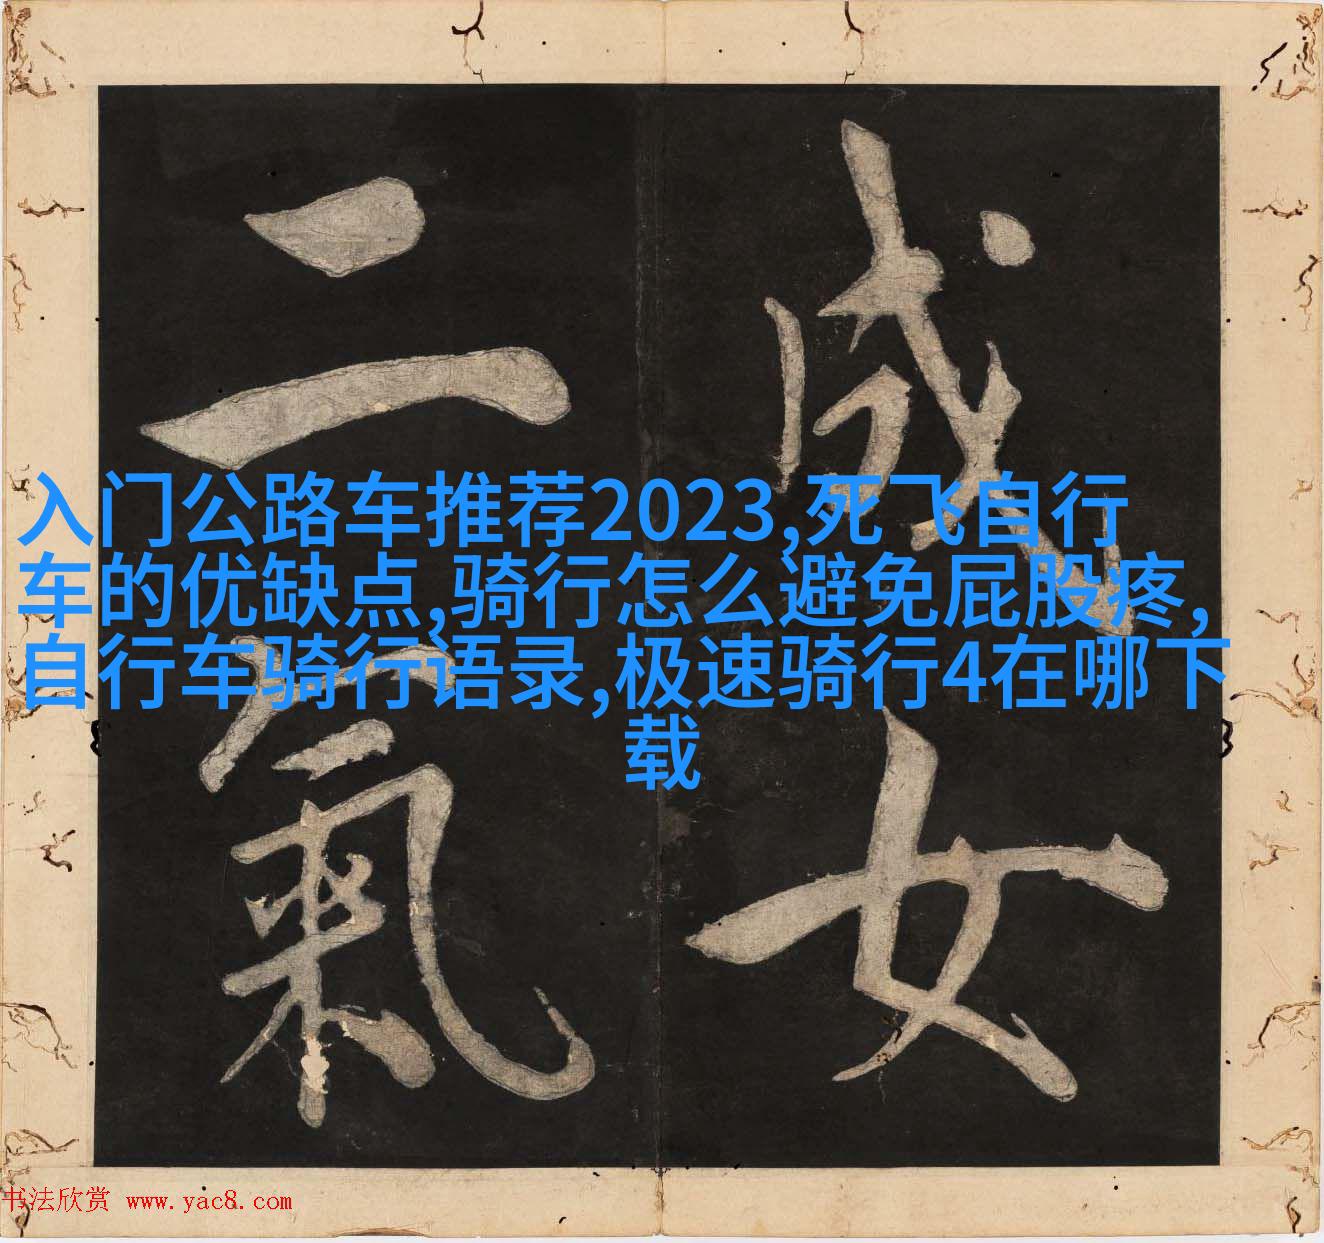 成女
二氣
入门公路车推荐2023,死飞自行
车的优缺点,骑行怎么避免屁股疼,
自行车骑行语录,极速骑行4在哪下
载
书法欣赏 www.yac8.com